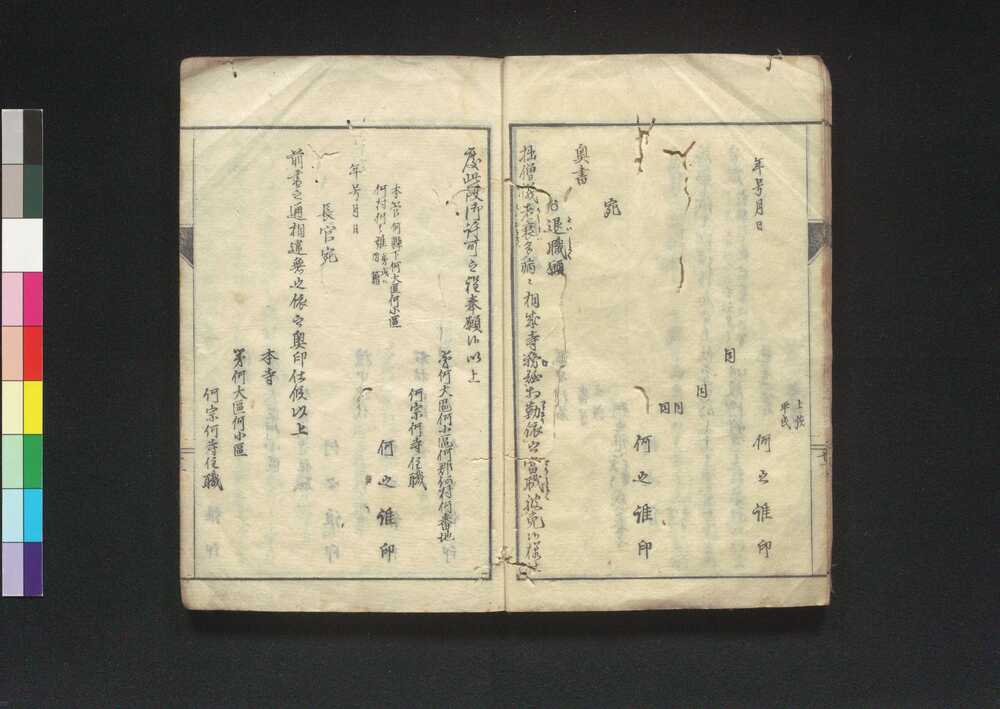 年号月日
士族
平民
何之誰印
同
同
同
同
何之誰印
宛
奥書
退職願
拙僧儀老衰多病ニ相成寺務難相勤依之當職被免候様
度此段御許可之程奉願候以上
第何大區何小區何郡何村何番地
何宗何寺住職
何之誰印
本管何縣下何大區何小區
何村何之誰
年号月日
長官宛
前書之通相違無之依之奥印仕候以上
本寺
第何大區何小區
何宗何寺住職